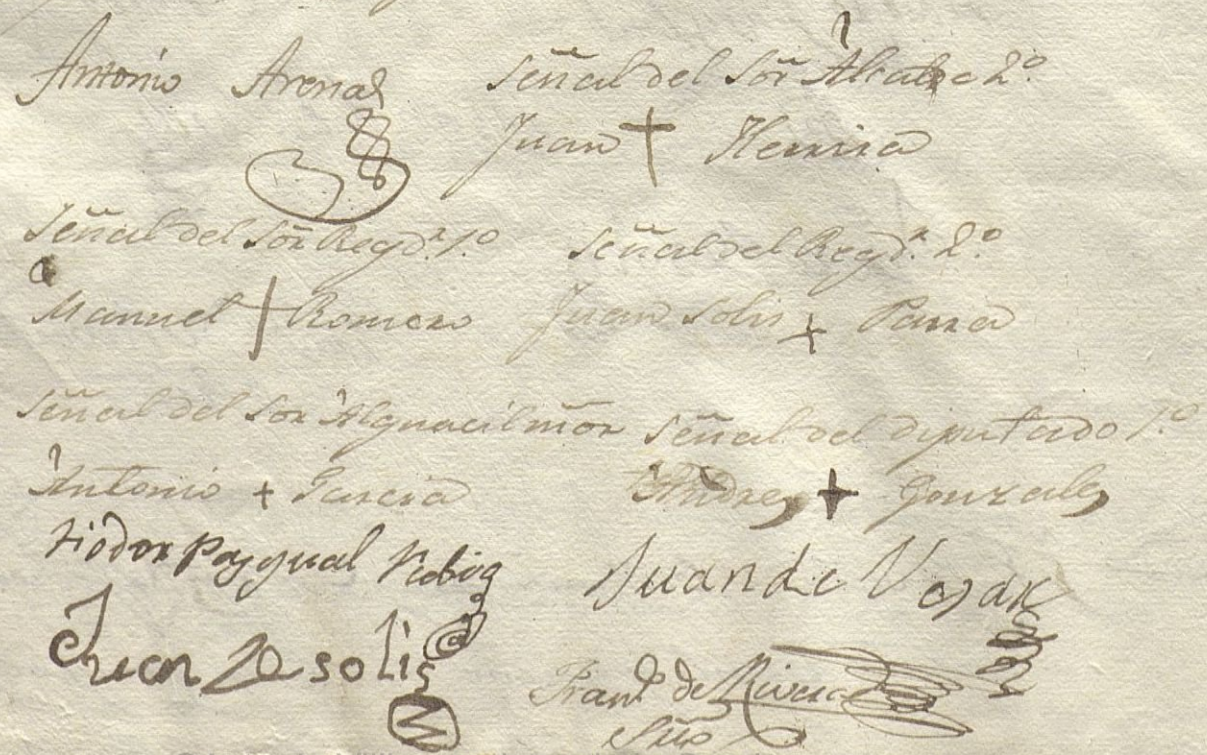 Antonio Arenas
señal del Sor Alcalde 2º
Juan + Herrera
señal del Sor Regdr. 1º
Manuel + Romero
señal del Regdr. 2º
Juan Solis + Parra
señal del Sor Alguacil mor
Antonio + Garcia
señal del diputado 1º
Andres + Gonzales
Pasqual
Juan de
Juan de solis
Franco de Rivera